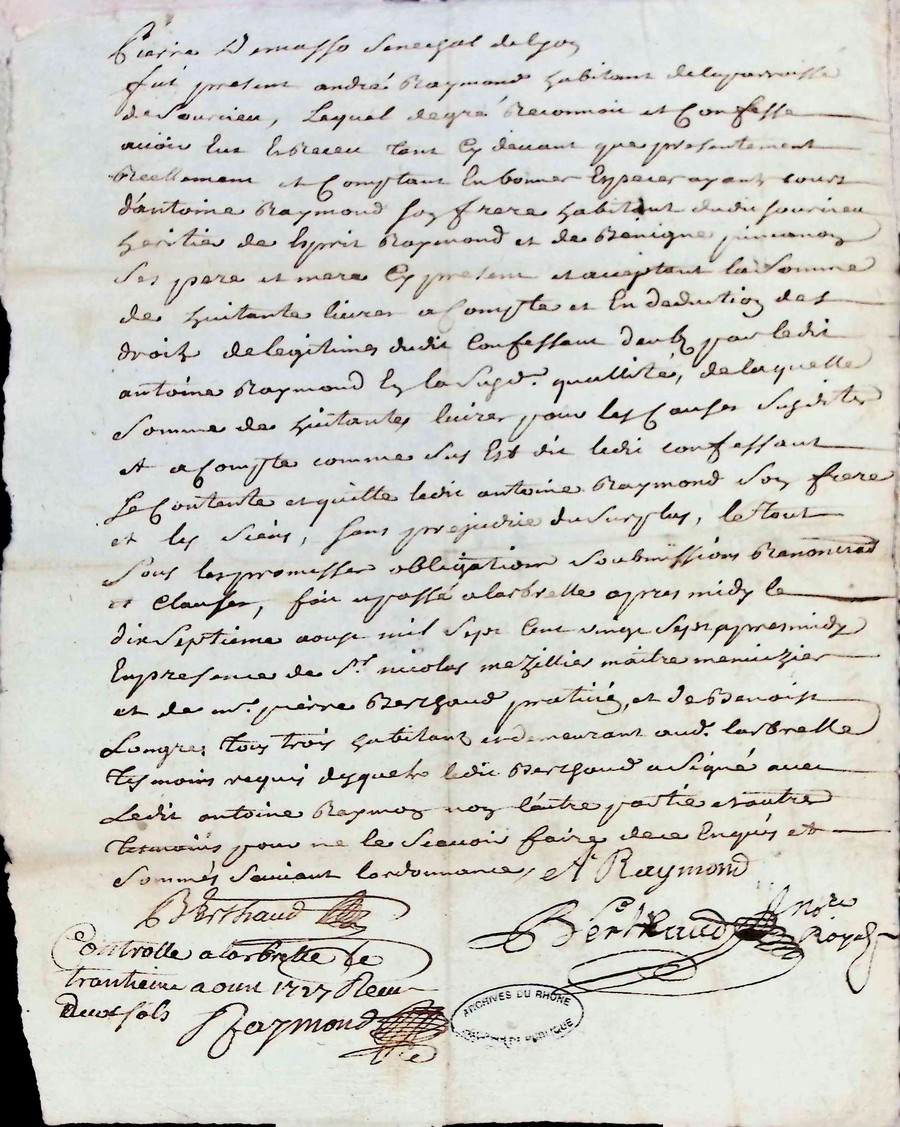 Pierre Demasso Senechal de Lyon
fut present andré Raymond habitant de la parroisse
de Sourcieu, Lequel de gré Reconnoit et Confesse
auoir Eut Et Receu tant Cy deuant que presentement
Reellement et Comptant En bonnes Especes ayants cours
d'antoine Raymond Son frere habitant dudit Sourcieu
heritie de Esprit Raymond et de Benigne
Ses pere et mere Cy present et acceptant la Somme
de huitante liures a Compte et En deduction des
droits de legitimes dudit Confessant deub par ledit
antoine Raymond En la Susd. quallité, de laquelle
Somme de huitantes liures pour les Causes Susdites
et a Compte comme Sus Est dit ledit confessant
Se Contente et quitte ledit antoine Raymond Son frere
et les Siens, Sans prejudice du Surplus, le tout
Sous les promesses obligations Soubmissions
et Clauses, fait et passé a larbrelle apres midy le
dix Septieme aoust mil Sept Cent vingt Sept apres midy
En presence de Sr. nicolas mezillie maitre menuizier
et de me. pierre Berthaud pratitié, et de Benoist
Longres tous trois habitant et demeurant aud. larbrelle
tesmoins requis desquels ledit Berthaud a Signé auec
Ledit antoine Raymon non l'autre partie et autre
tesmoins pour ne le Scauoir faire de ce Enquis et
Sommés Suiuant lordonnance, At Raymond
Berthaud
Berthaud nore Royal
Controlle a larbrelle le
trantieme aoust 1727 Receu
deux sols
Raymond
ARCHIVES DU RHÔNE
PUBLIQUE